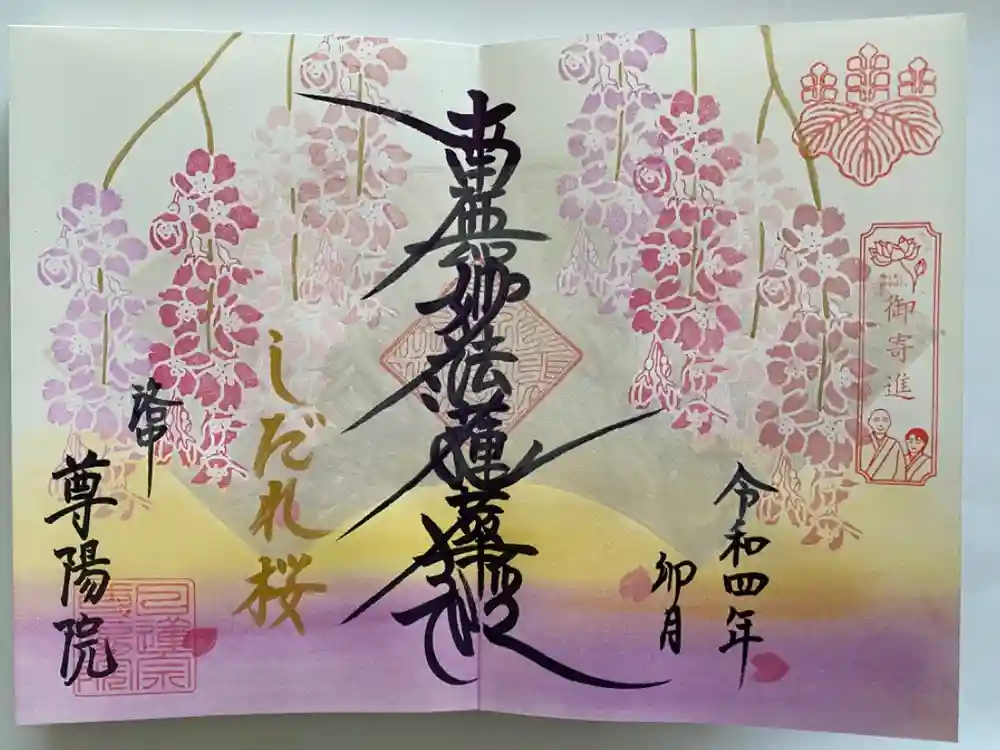 御寄進
令和四年
卯月
南無妙法蓮華経
しだれ桜
洛中
尊陽院
日蓮宗